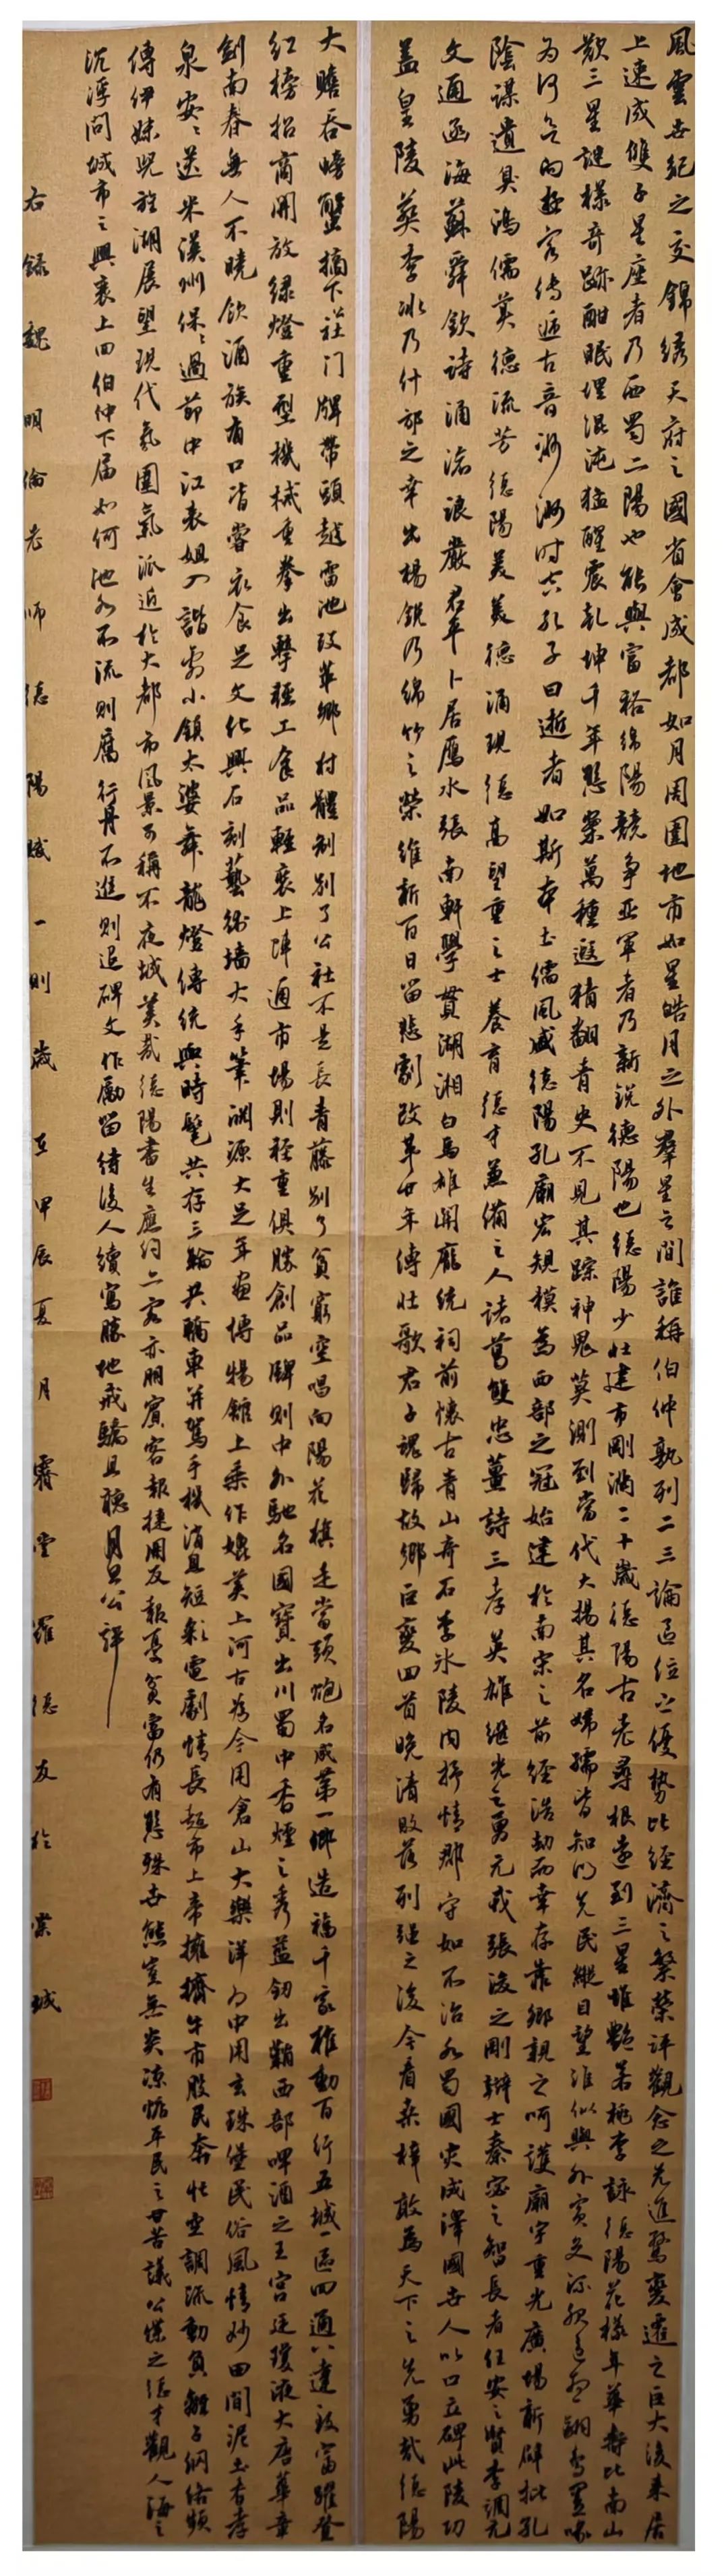 風雲世紀之交錦綉天府之國省會成都如月周圍地市如星皓月之外羣星之間誰稱伯仲孰列二三論區位之優勢比經濟之繁榮評觀念之先進驚變遷之巨大後來居
上速成雙子星座者乃西蜀二陽也能與富裕綿陽競争亞軍者乃新銳德陽也德陽少壯建市剛滿二十歲德陽古老尋根遠到三星堆艷若桃李詠德陽花樣年華壽比南山
歎三星謎様奇跡酣眠埋混沌猛醒震乾坤千年懸案萬種遐猜翻青史不見其踪神鬼莫測到當代大揚其名婦孺皆知
為何
古音
時六孔子曰逝者如斯本土儒風盛德陽孔廟宏規模為西部之冠始建於南宋之前經浩劫而幸存靠鄉親之呵護廟宇重光廣場新闢批孔
陰謀遺臭鴻儒美德流芳德陽美美德涌現德高望重之士養育德才兼備之人諸葛雙忠薑詩三孝英雄繼光之勇元戎張浚之剛辯士秦宓之智長者任安之賢李調元
文通函海蘇舜欽詩涌滄浪嚴君平卜居鴈水張南軒學貫湖湘白馬雄關龐統祠前懷古青山奇石李冰陵内抒情郡守如不治水蜀國失成澤國世人以口立碑此陵功
蓋皇陵葬李冰乃什邡之幸出楊銳乃綿竹之榮維新百日留悲劇改革廿年傳壯歌君子魂歸故鄉巨變回首晚清敗落列強之後今看桑梓敢為天下之先勇哉德陽
大膽吞螃蟹摘下社门牌帶頭越雷池改革鄉村體制别了公社不是長青藤别了貧窮空唱向陽花棋走當頭炮名成第一鄉造福千家推動百行五城一區四通八達致富躍登
紅榜招商開放緑燈重型機械重拳出擊輕工食品輕裝上陣通市場則輕重俱勝創品牌則中外馳名國寶出川蜀中香煙之秀藍劍出鞘西部啤酒之王宫廷瓊液大唐華章
劍南春無人不曉飲酒族有口皆嘗衣食足文化興石刻藝術墙大手筆淵源大足年畫博物館上乘作媲美上河古為今用倉山大樂洋为中用玄珠堡民俗風情妙田間泥土香孝
泉安安送米漢州保保過節中江表姐入諧劇小鎮太婆舞龍燈傳統與時髦共存三輪共轎車并駕手機消息短彩電劇情長超市上帝擁擠牛市股民奔忙空調流動負離子網絡頻
傳伊妹兒旌湖展望現代氛圍氣派近於大都市風景可稱不夜城美哉德陽書生應约上客亦朋賓客報捷朋友報憂貧富仍有懸殊世態豈無炎凉惦平民之甘苦議公僕之德才觀人海之
沉浮問城市之興衰上回伯仲下届如何池水不流則腐行舟不進則退碑文作勵留待後人續寫勝地戒驕且聽月旦公評
右録魏明倫老師德陽賦一則歲在甲辰夏月霽雪羅德友於棠城